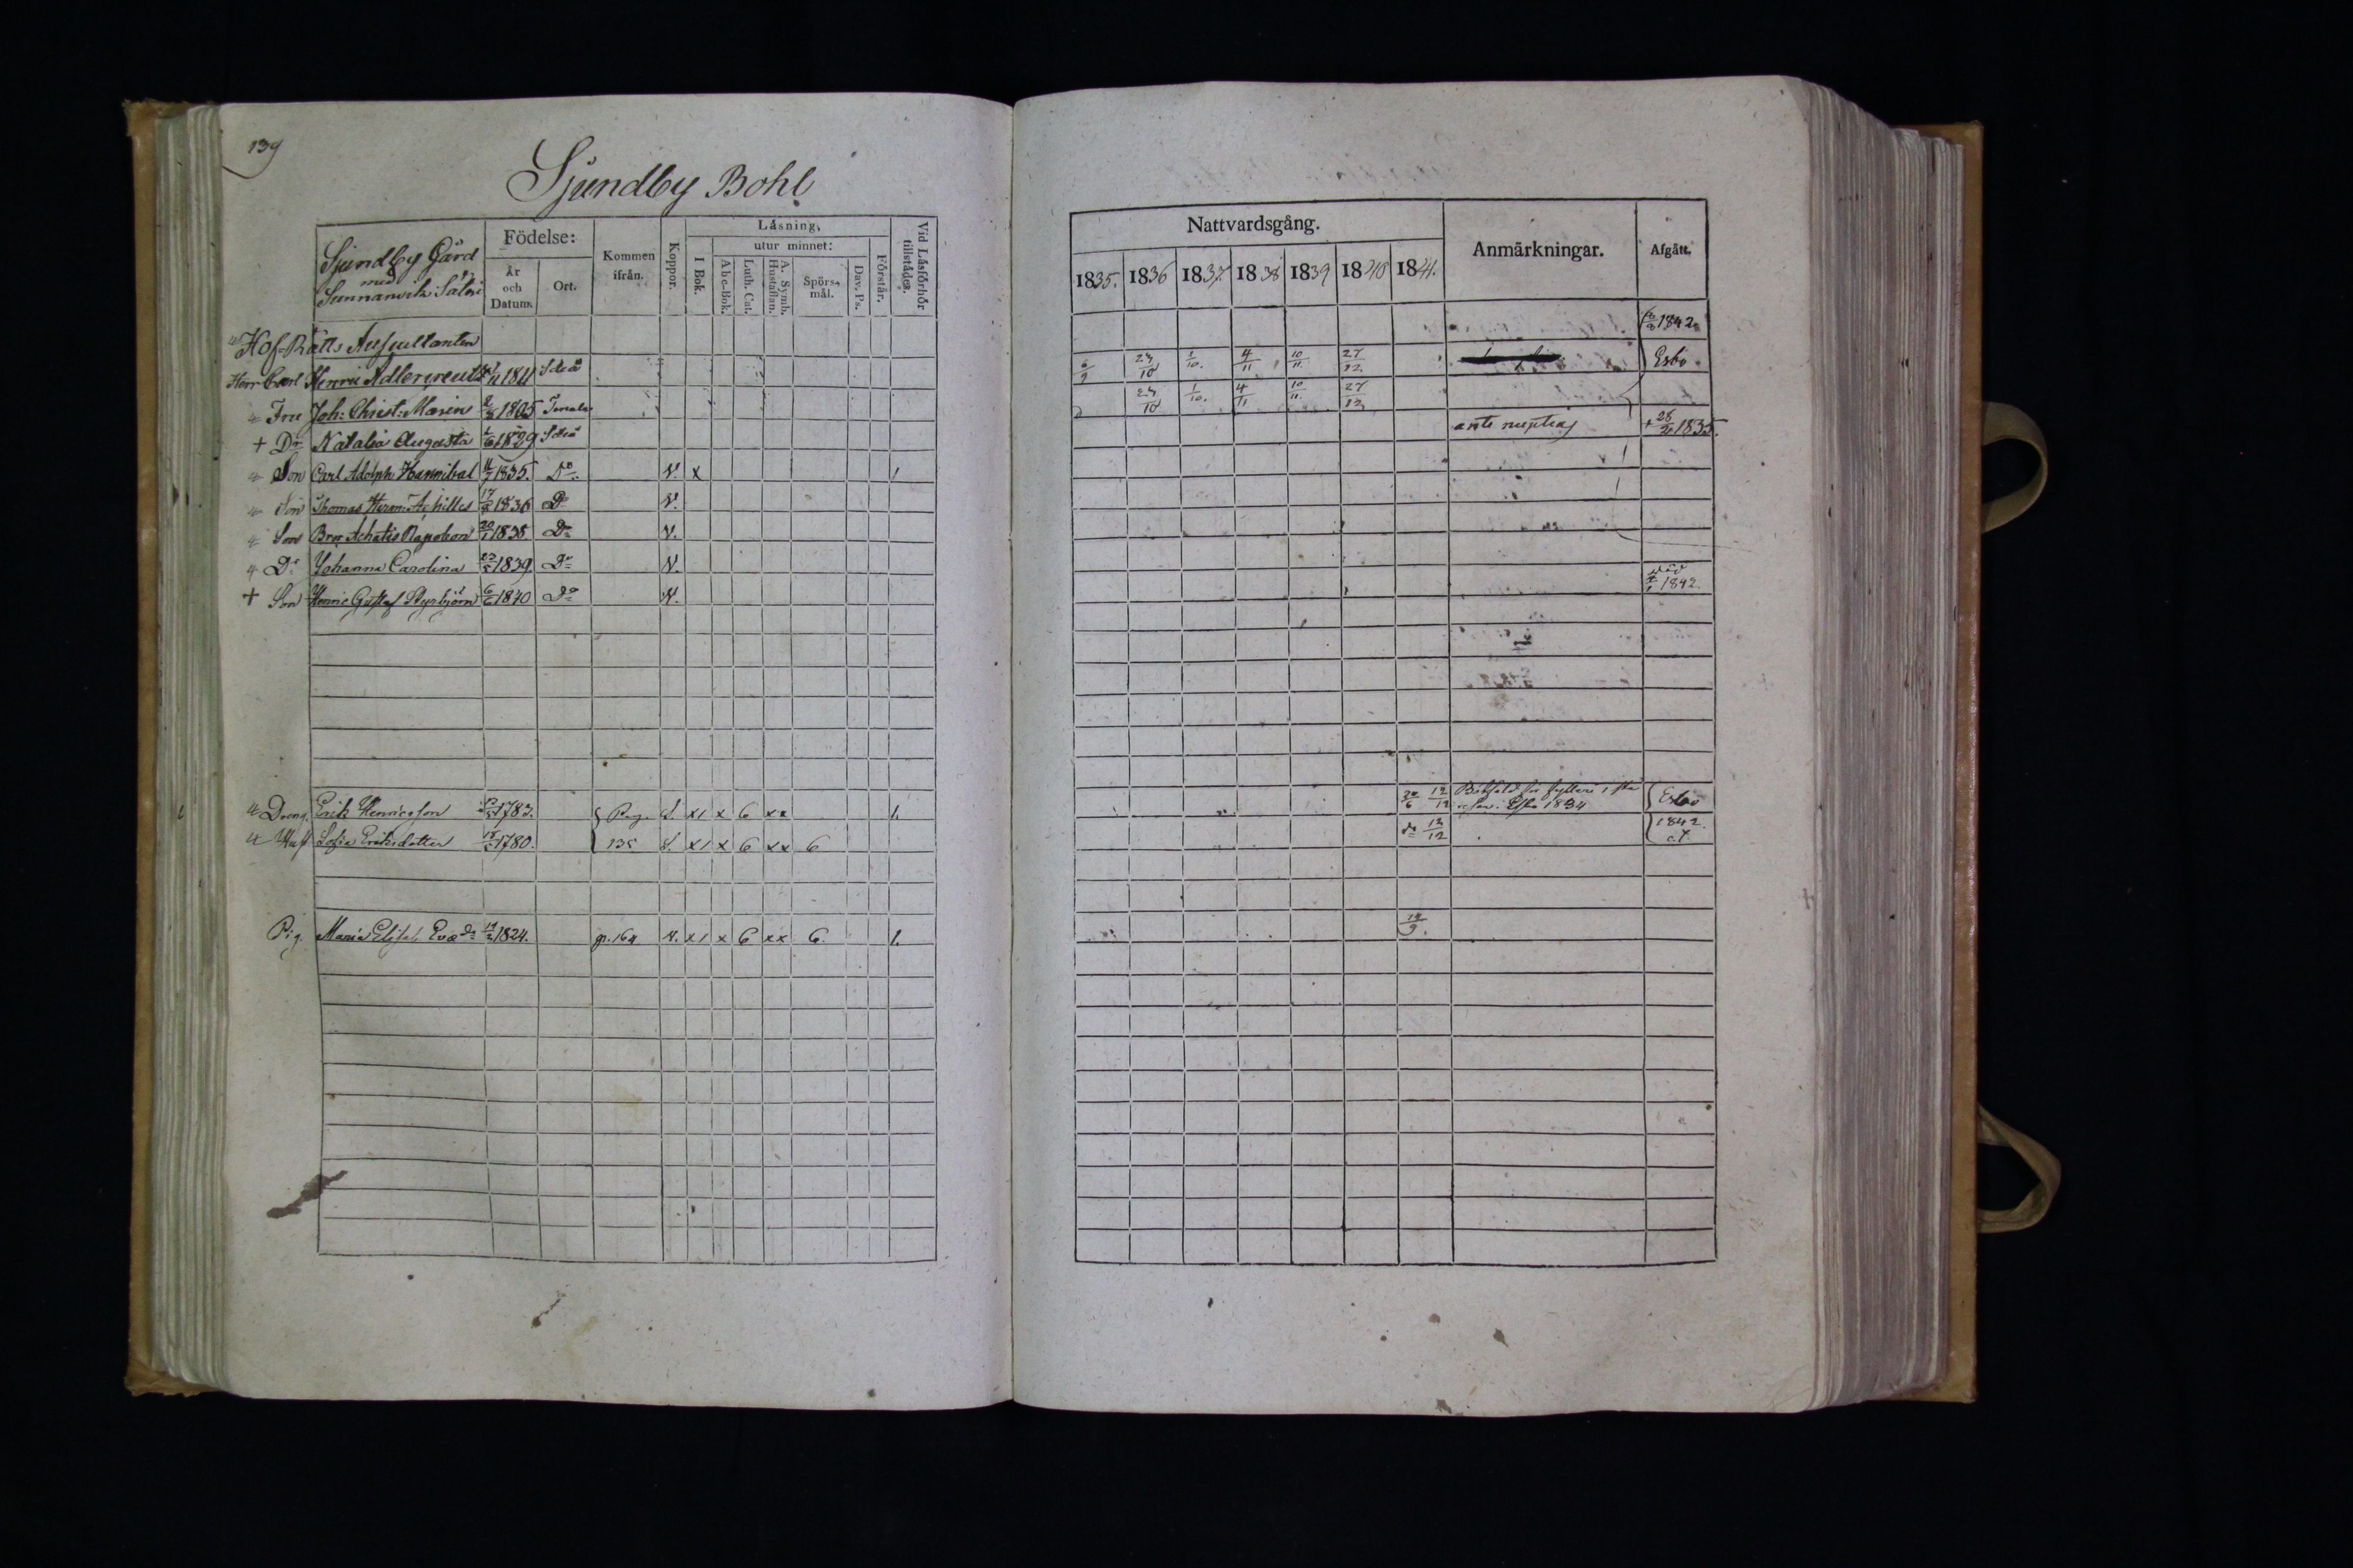 139
Sjundby Bohl
Sjundby Gård
med
Sunnanvik Säteri
Födelse:
År och Datum.
Ort.
Kommen ifrån.
Koppor.
Läsning,
I Bok.
utur minnet:
Abc-Bok.
Luth. Cat.
A. Symb. Hustaflan.
Spörsmål.
Dav. Ps.
Förstår.
Vid Läsförhör tillstädes.
Hof-Rätts Auscultanten
Herr Carl Henric Adlercreutz 1811
Fru Joh: Christ: 1805
+ Dr Natalia Augusta 1829
Son Carl Adolph Hannibal 1835. Do V. x 1
Son Thomas Herm: Achilles 17 1836 Do V.
Son Bror Achates Napoleon 20/1 1838 Do V.
Dr Johanna Carolina 1839. Do V.
+ Son Henric Gustaf Styrbjörn 1840 Do V.
Dreng. Erik Henricsson 1783. Pag. x1 x 6 xx 1.
Hust Sofia Ericsdotter 1780. 135 x1 x 6 xx 6
Pig. Maria Evæ dr 1824. p. 164 V. x1 x 6 xx 6. 1.
Nattvardsgång.
1835. 1836 1837. 1838 1839 1840 1841.
Anmärkningar.
Afgått.
1842
24/10 1/10. 4/11 10/11. 27/12 Esbo
24/10 1/10. 4/11 10/11. 27/12
ante nuptias + 28/2 1835.
död
1842.
20/6 12/12 1834 Esbo
do 12/12 1842
19/9.